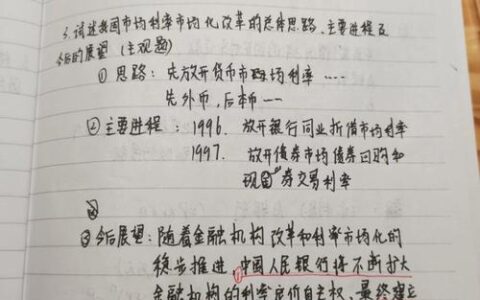 3. 试述我国市场利率市场化改革的总体思路、主要进程及
今后的展望（主观题）
① 思路：先放开货币市场利率 ····
先外币，后本币 ··
② 主要进程：1996. 放开银行同业拆借市场利率
1997. 放开债券市场债券回购和
现券交易利率
③ 今后展望：随着金融机构改革和利率市场化的
稳步推进，①中国人民银行将不断扩大
金融机构的利率定价自主权，最终建立